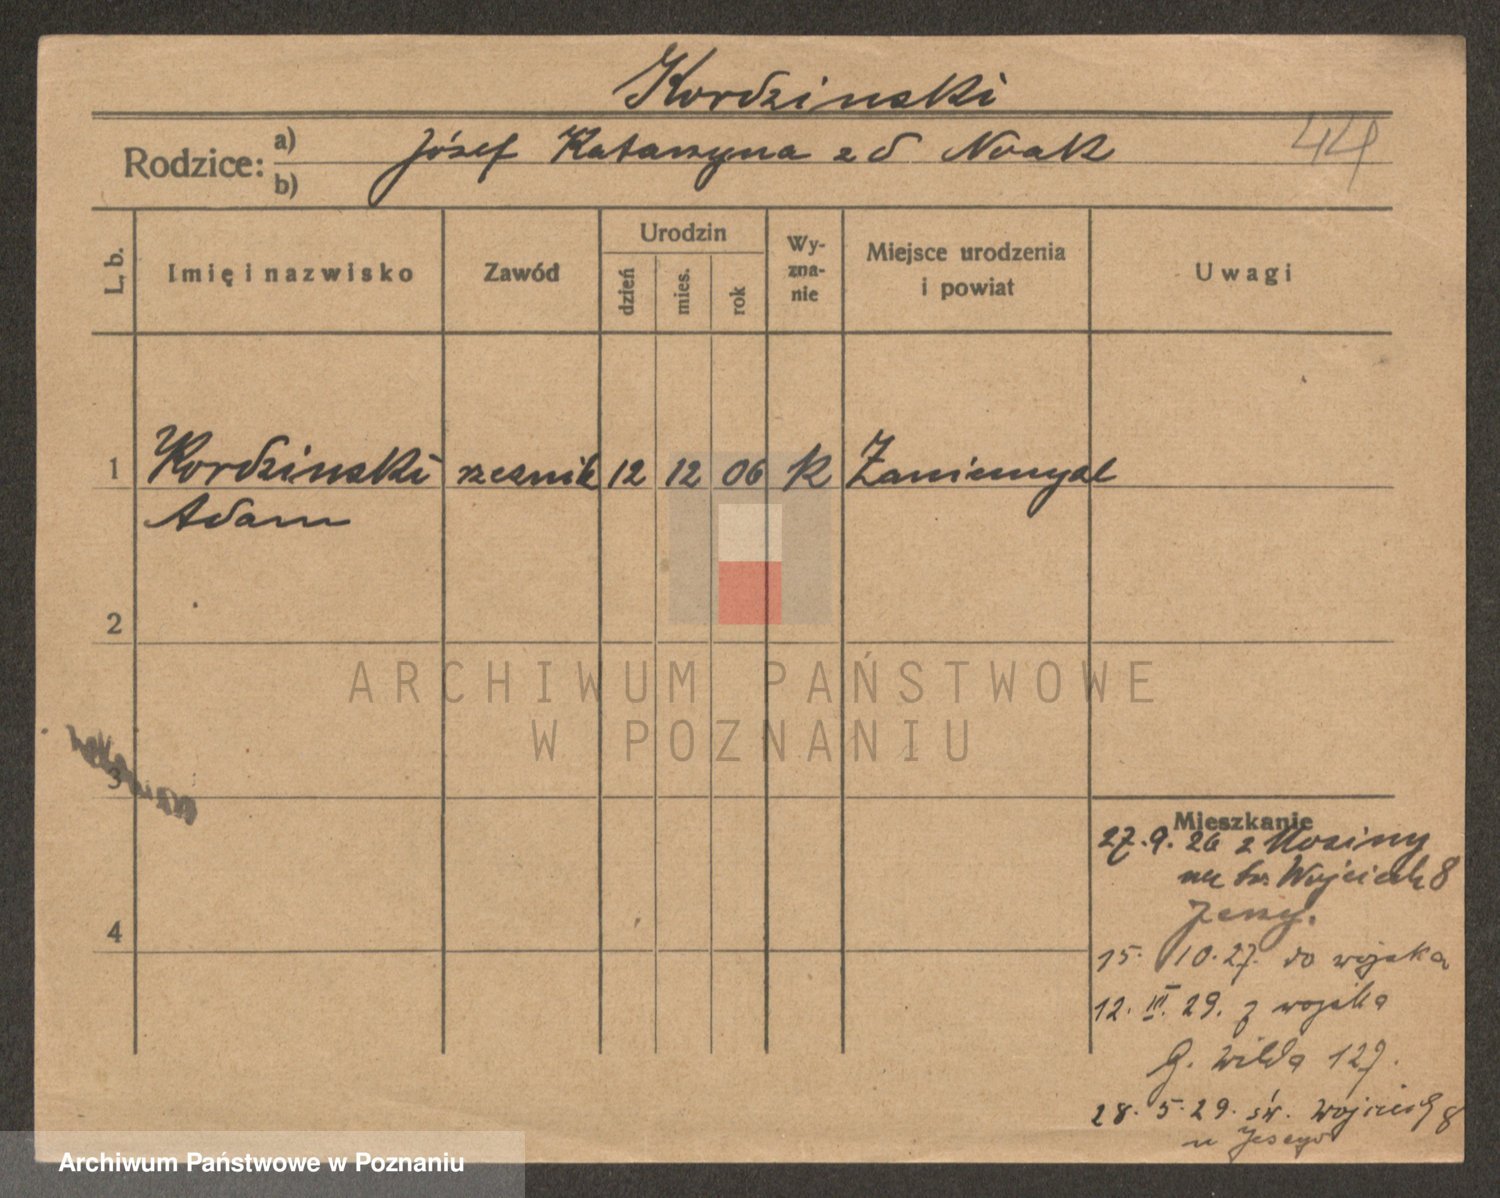 Kordzinski
Rodzice: a) Józef Katarzyna z d Noak
b)
44
L. b.
Imię i nazwisko
Zawód
Urodzin
dzień
mies.
rok
Wy-
zna-
nie
Miejsce urodzenia
i powiat
Uwagi
1 Kordzinski rzeznik 12 12 06 K Zaniemysl
Adam
2
3
4
ARCHIWUM PAŃSTWOWE
W POZNANIU
Mieszkanie
27.9.26 z Mosiny
Wojciech 8
15. 10.27. do wojska
12. III. 29. z wojska
G. Wilda 127.
28.5.29. św. Wojciech 8
Archiwum Państwowe w Poznaniu